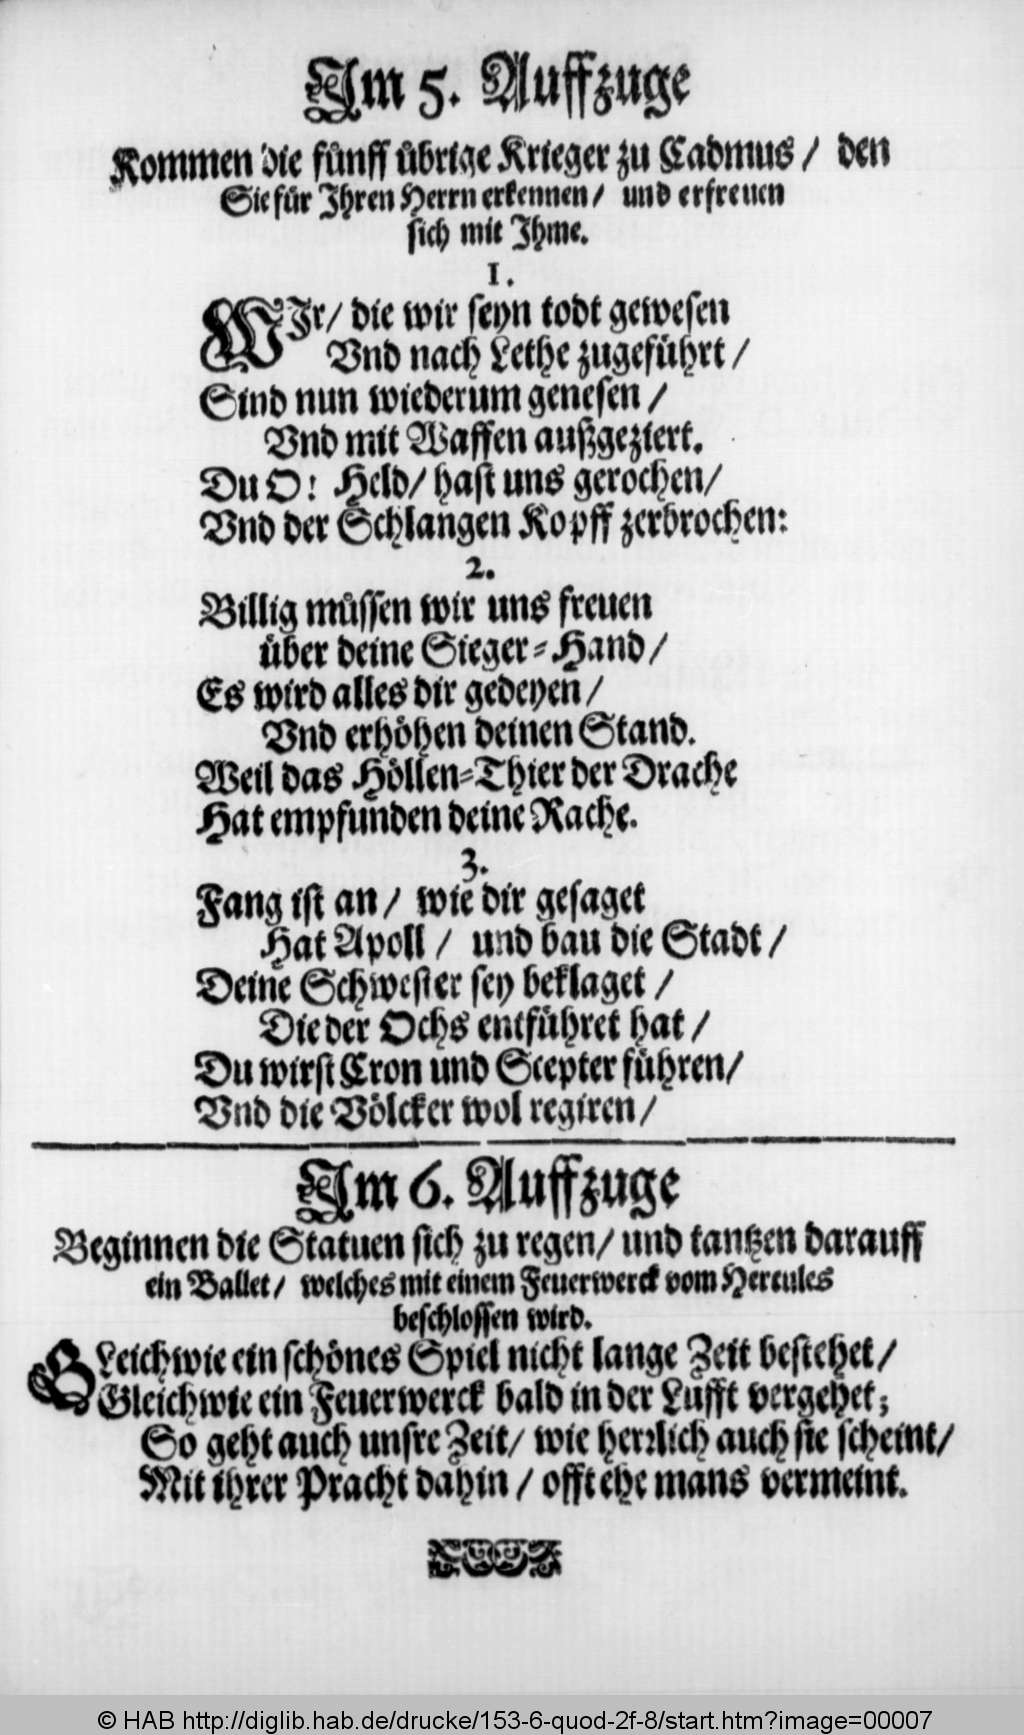 Im 5. Auffzuge
Kommen die fünff übrige Krieger zu Cadmus / den
Sie für Ihren Herrn erkennen / und erfreuen
sich mit Ihme.
1.
WIr / die wir seyn todt gewesen
Vnd nach Lethe zugeführt /
Sind nun wiederum genesen /
Vnd mit Waffen außgeziert.
Du O! Held / hast uns gerochen /
Vnd der Schlangen Kopff zerbrochen:
2.
Billig müssen wir uns freuen
über deine Sieger-Hand /
Es wird alles dir gedeyen /
Vnd erhöhen deinen Stand.
Weil das Höllen-Thier der Drache
Hat empfunden deine Rache.
3.
Fang ist an / wie dir gesaget
Hat Apoll / und bau die Stadt /
Deine Schwester sey beklaget /
Die der Ochs entführet hat /
Du wirst Cron und Scepter führen /
Vnd die Völcker wol regiren /
Im 6. Auffzuge
Beginnen die Statuen sich zu regen / und tantzen darauff
ein Ballet / welches mit einem Feuerwerck vom Hercules
beschlossen wird.
GLeichwie ein schönes Spiel nicht lange Zeit bestehet /
Gleichwie ein Feuerwerck bald in der Lufft vergehet;
So geht auch unsre Zeit / wie herrlich auch sie scheint /
Mit ihrer Pracht dahin / offt ehe mans vermeint.
© HAB http://diglib.hab.de/drucke/153-6-quod-2f-8/start.htm?image=00007